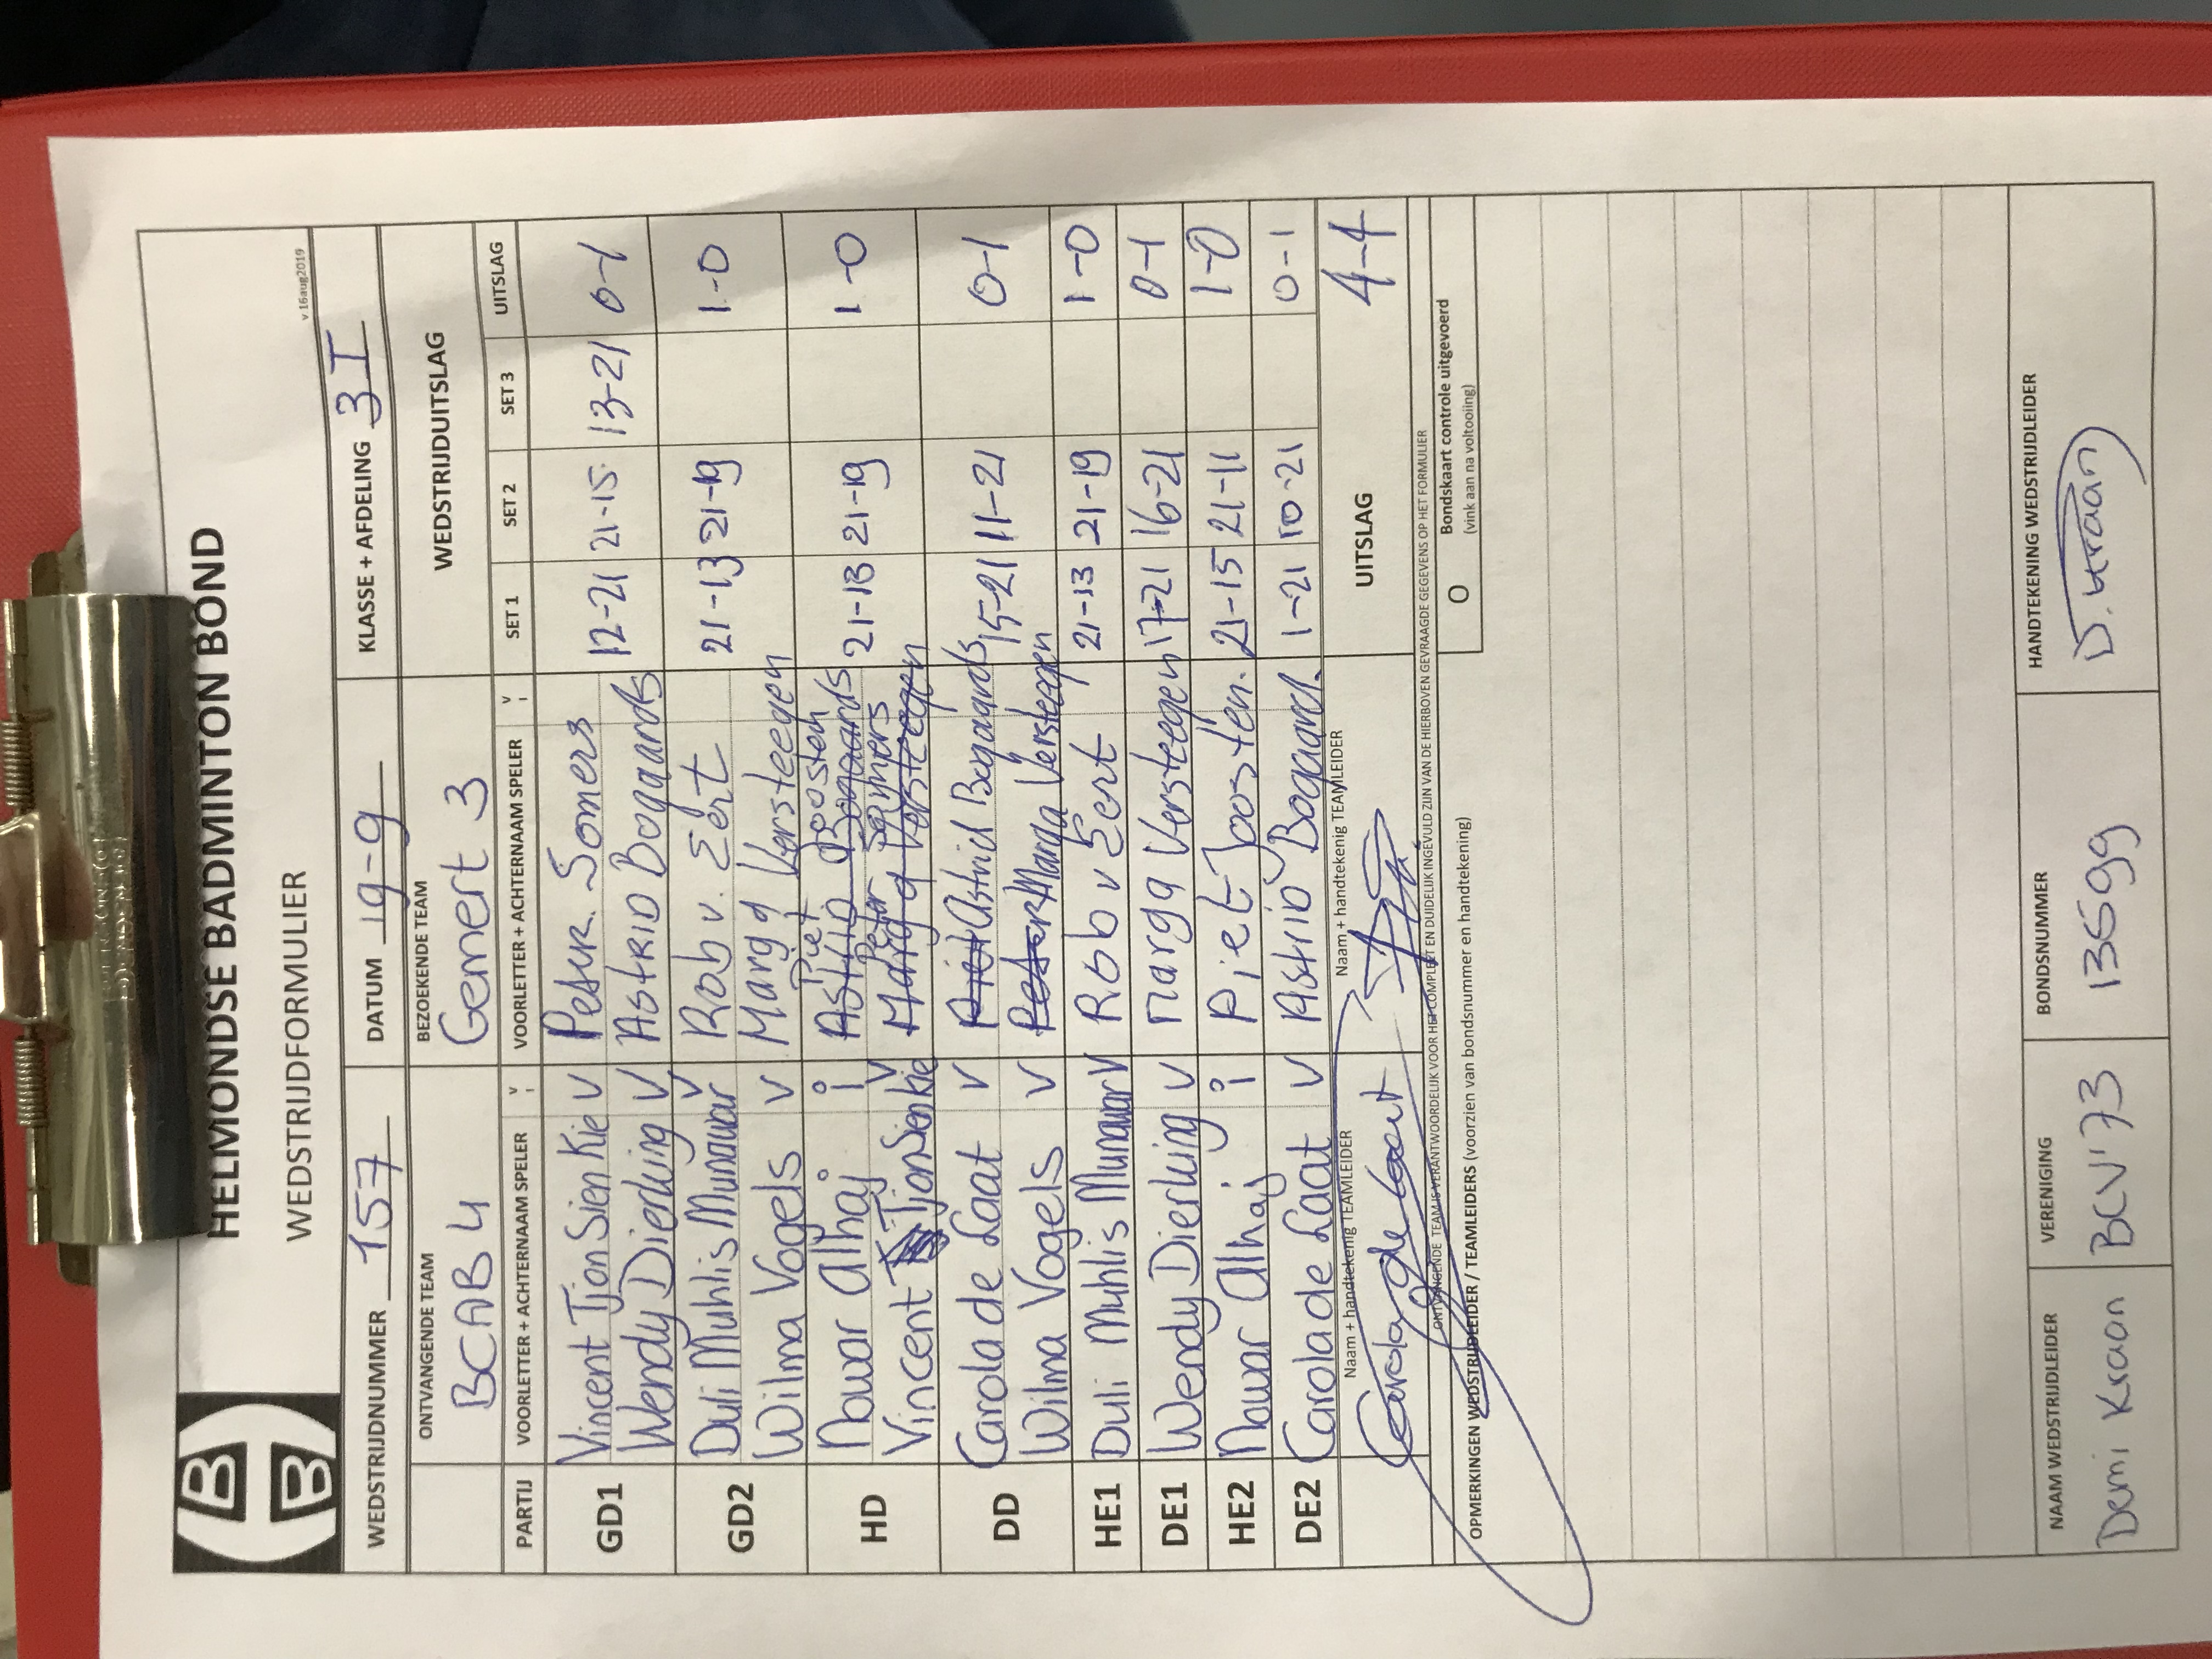 HELMONDSE BADMINTON BOND
WEDSTRIJDFORMULIER
v 16aug2019
WEDSTRIJDNUMMER 157 DATUM 19-9 KLASSE + AFDELING 3I
ONTVANGENDE TEAM BEZOEKENDE TEAM WEDSTRIJDUITSLAG
BCAB 4 Gemert 3
PARTIJ VOORLETTER + ACHTERNAAM SPELER V I VOORLETTER + ACHTERNAAM SPELER V I SET 1 SET 2 SET 3 UITSLAG
GD1 Vincent Tjon Sien Kie V Peter Somers 12-21 21-15 13-21 0-1
Wendy Dierking V Astrid Bogaards
GD2 Duli Muhlis Munawar V Rob v. Eert 21-13 21-19 1-0
Wilma Vogels V Marga Versteegen
HD Nowar Alhaj i Astrid Bogaards Piet Joosten 21-13 21-19 1-0
Vincent Tjon Sien Kie V Marga Versteegen Peter Sommers
DD Carola de Laat V Piet Astrid Bogaards 15-21 11-21 0-1
Wilma Vogels V Peter Marga Versteegen
HE1 Duli Muhlis Munawar V Rob v Eert 21-13 21-19 1-0
DE1 Wendy Dierking V Marga Versteegen 17-21 16-21 0-1
HE2 Nowar Alhaj i Piet Joosten. 21-15 21-11 1-0
DE2 Carola de Laat V Astrid Bogaard. 1-21 10-21 0-1
Naam + handtekenig TEAMLEIDER Naam + handtekenig TEAMLEIDER UITSLAG 4-4
Carola de Laat
ONTVANGENDE TEAM IS VERANTWOORDELIJK VOOR HET COMPLEET EN DUIDELIJK INGEVULD ZIJN VAN DE HIERBOVEN GEVRAAGDE GEGEVENS OP HET FORMULIER
OPMERKINGEN WEDSTRIJDLEIDER / TEAMLEIDERS (voorzien van bondsnummer en handtekening) O Bondskaart controle uitgevoerd
(vink aan na voltooiing)
NAAM WEDSTRIJDLEIDER VERENIGING BONDSNUMMER HANDTEKENING WEDSTRIJDLEIDER
Demi Kraan BCV'73 13599 D. Kraan